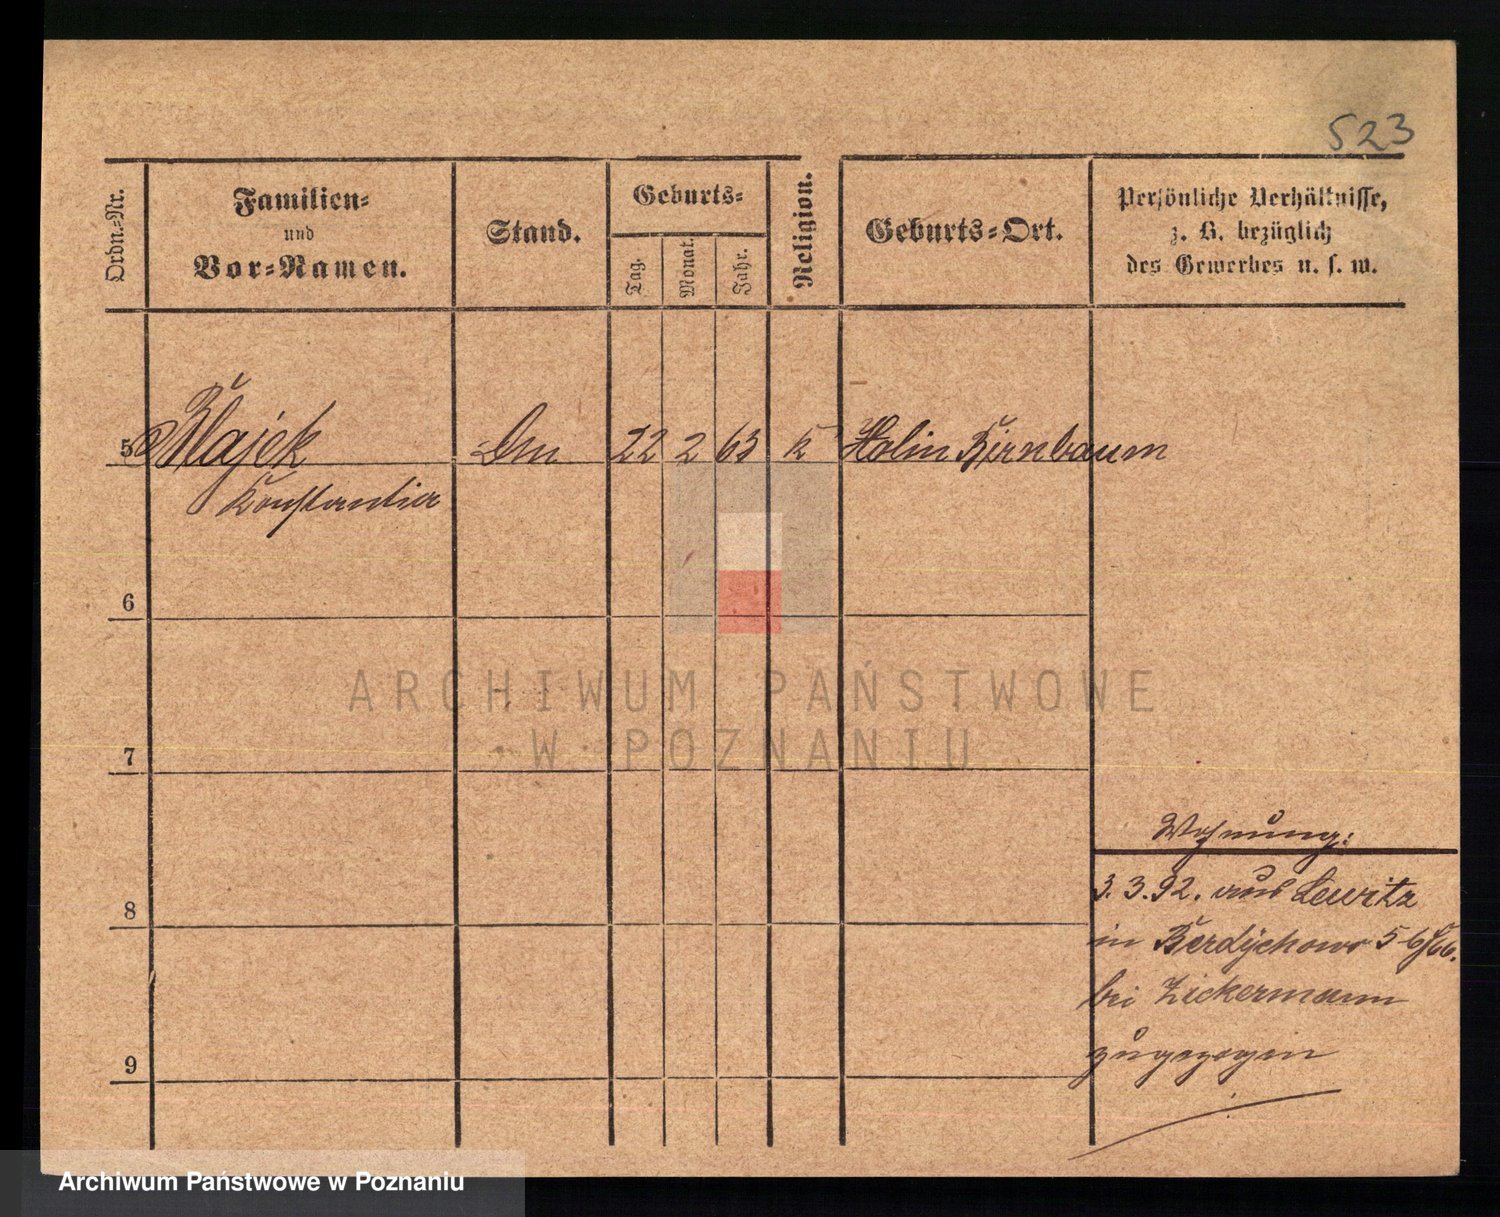 523
Ordn.-Nr.
Familien-
und
Vor-Namen.
Stand.
Geburts-
Tag.
Monat.
Jahr.
Religion.
Geburts-Ort.
Persönliche Verhältnisse,
z. B. bezüglich
des Gewerbes u. s. w.
5 Blajek 22 2 63 k Holin Birnbaum
Konstantia
6
7
8
9
Wohnung:
3. 3. 92. aus Lewitz
in Berdychowo 5
bei Zickermann
zugezogen
ARCHIWUM PAŃSTWOWE
W POZNANIU
Archiwum Państwowe w Poznaniu